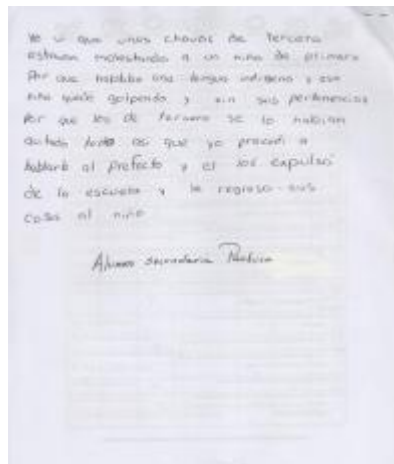 Yo vi que unos chavos de tercero
estaban molestando a un niño de primero
Por que hablaba una lengua indígena y ese
niño quedo golpeado y sin sus pertenencias
Por que los de tercero se lo habian
quitado todo asi que yo procedi a
hablarle al prefecto y el los expulsó
de la escuela y le regreso sus
cosas al niño
Alumno secundaria